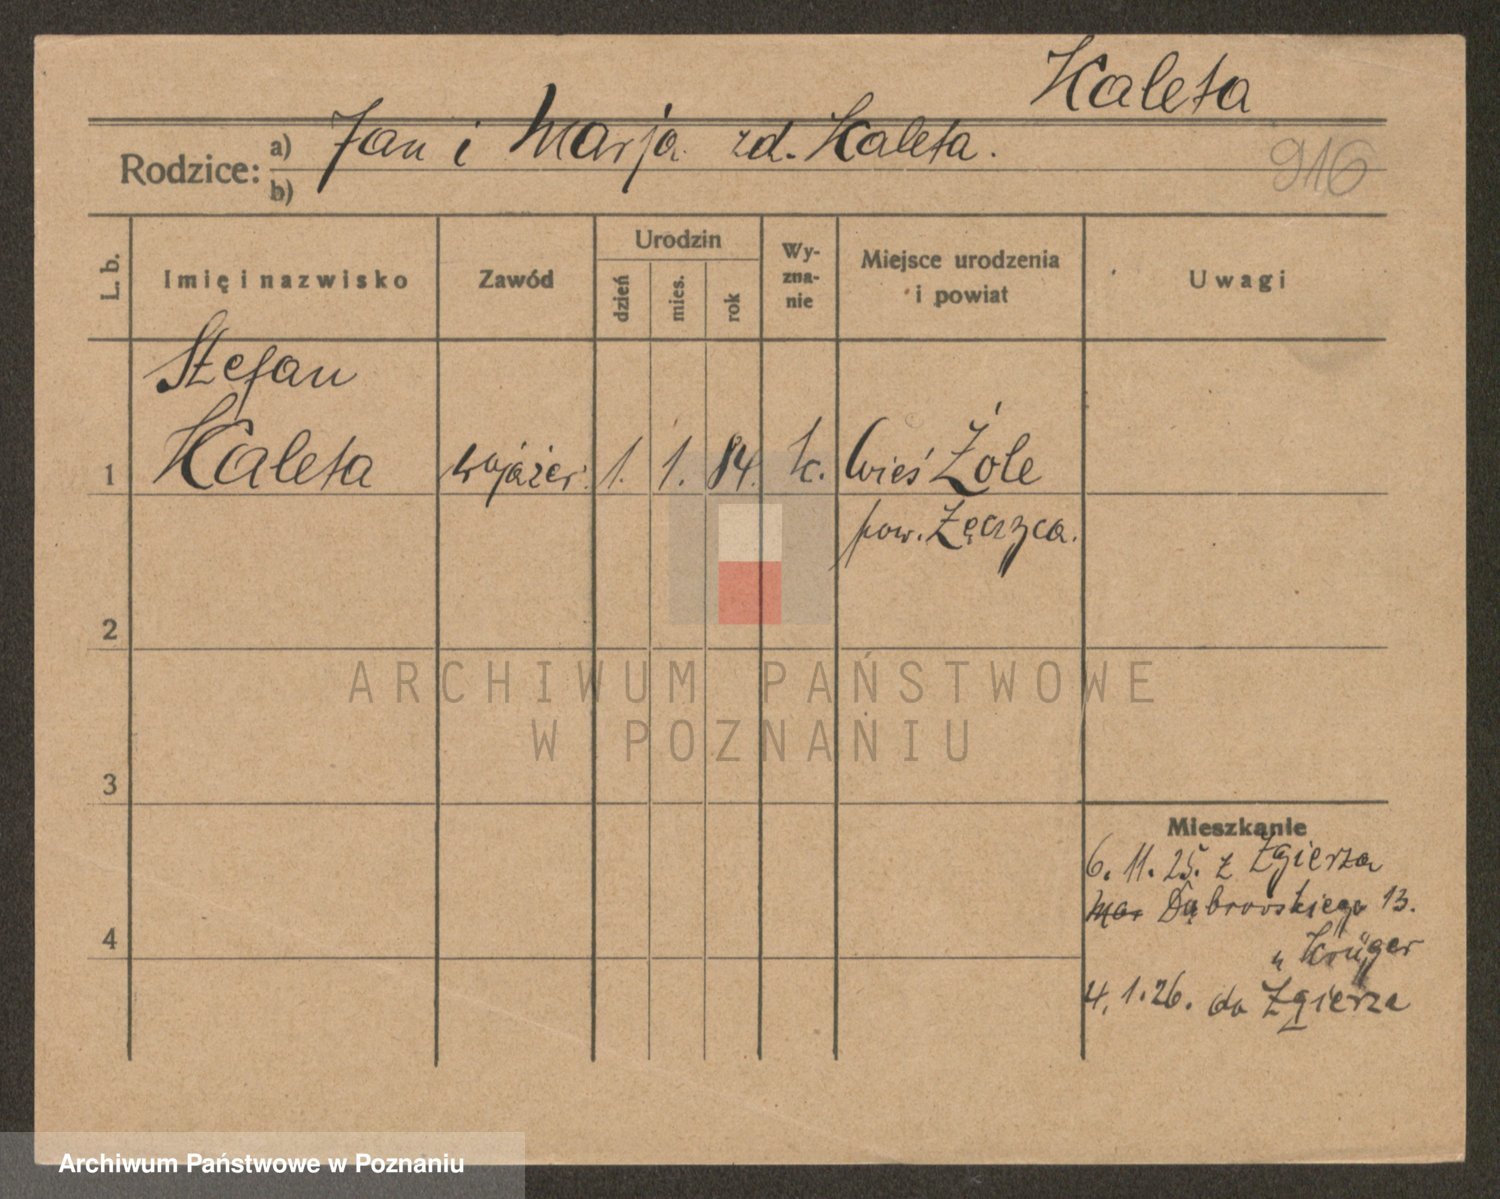 Kaleta
Rodzice: a) Jan i Marja zd. Kaleta.
b)
916
L. b.
Imię i nazwisko
Zawód
Urodzin
dzień
mies.
rok
Wy-
zna-
nie
Miejsce urodzenia
i powiat
Uwagi
Stefan
1 Kaleta wojażer. 1. 1. 84. k. wieś Żole
pow. Łęczyca.
2
3
4
Mieszkanie
6. 11. 25. z Zgierza
Dąbrowskiego 13.
u Krüger
4. 1. 26. do Zgierza
ARCHIWUM PAŃSTWOWE
W POZNANIU
Archiwum Państwowe w Poznaniu